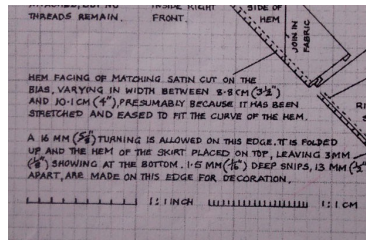 THREADS REMAIN.
INSIDE RIGHT
FRONT.
SIDE OF
HEM
JOIN IN
FABRIC
HEM FACING OF MATCHING SATIN CUT ON THE
BIAS, VARYING IN WIDTH BETWEEN 8·8CM (3½")
AND 10·1CM (4"), PRESUMABLY BECAUSE IT HAS BEEN
STRETCHED AND EASED TO FIT THE CURVE OF THE HEM.
A 16 MM (⅝") TURNING IS ALLOWED ON THIS EDGE. IT IS FOLDED
UP AND THE HEM OF THE SKIRT PLACED ON TOP, LEAVING 3MM
(⅛") SHOWING AT THE BOTTOM. 1·5 MM (1/16") DEEP SNIPS, 13 MM (½"
APART, ARE MADE ON THIS EDGE FOR DECORATION.
1:1 INCH
1:1 CM